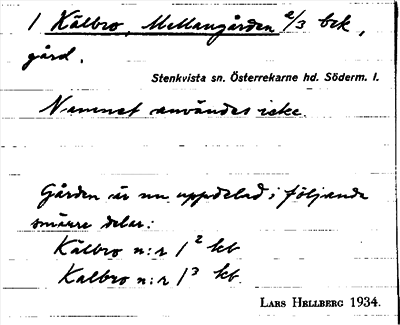 1 Kälbro, Mellangården 2/3 bck,
gård.
Stenkvista sn. Österrekarne hd. Söderm. l.
Namnet användes icke.
Gården är nu uppdelad i följande
smärre delar:
Kälbro n:r 1² kb
Kälbro n:r 1³ kb.
LARS HELLBERG 1934.